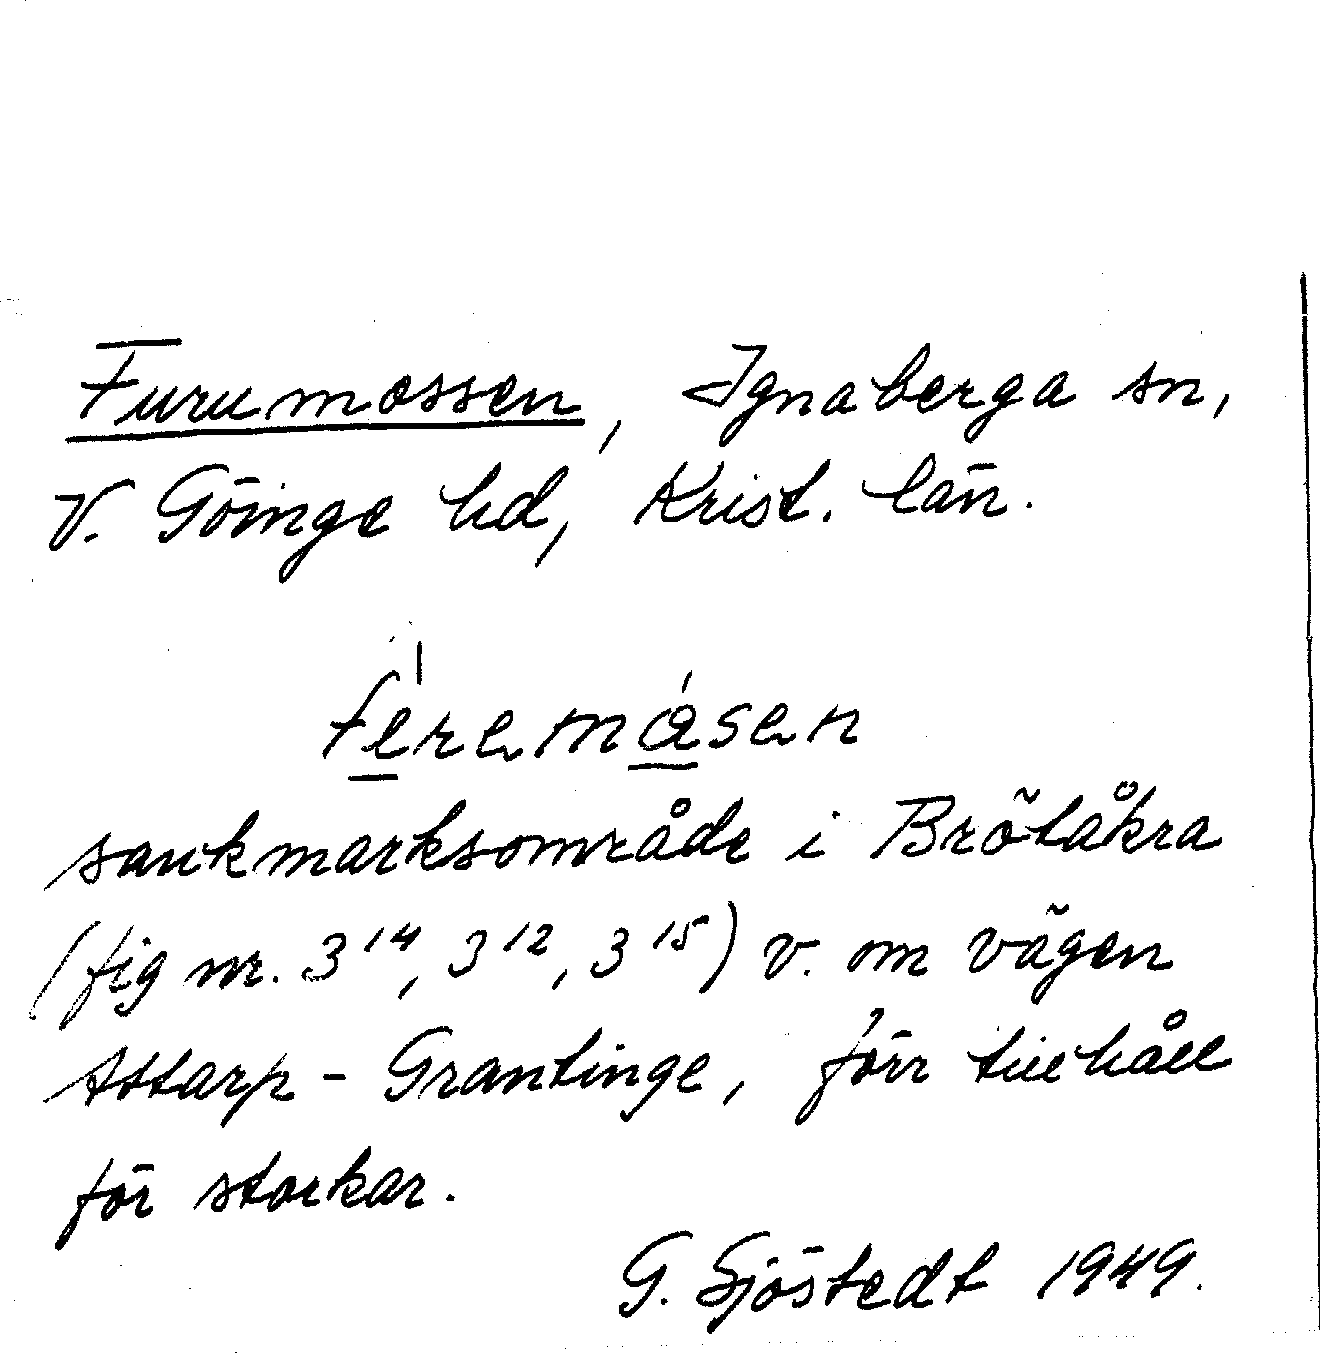 Furumossen, Ignaberga sn,
V. Göinge hd, Krist. län.
feremåsen
sankmarksområde i Brötåkra
(fig nr. 3¹⁴, 3¹², 3¹⁵) v. om vägen
Attarp - Grantinge, förr tillhåll
för storkar.
G. Sjöstedt 1949.